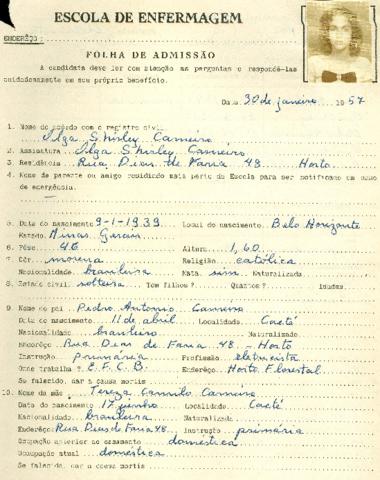 ESCOLA DE ENFERMAGEM
ENDERÊÇO:
FOLHA DE ADMISSÃO
A candidata deve ler com atenção as perguntas e respondê-las
cuidadosamente em seu próprio benefício.
Data 30 de janeiro 1957
1. Nome de acôrdo com o registro civil
Ilga Shirley Carneiro
2. Assinatura Ilga Shirley Carneiro
3. Residência Rua Dias de Faria 48 Horto
4. Nome de parente ou amigo residindo mais perto da Escola para ser notificado em caso
de emergência.
5. Data do nascimento 9-1-1939 Local do nascimento Belo Horizonte
Estado Minas Gerais
6. Pêso 46 Altura 1,60
7. Côr morena Religião católica
Nacionalidade brasileira Nata sim Naturalizada
8. Estado civil solteira Tem filhos? Quantos? Idades
9. Nome do pai Pedro Antonio Carneiro
Data do nascimento 11 de abril Localidade Caeté
Nacionalidade brasileiro Naturalizado
Enderêço Rua Dias de Faria 48 - Horto
Instrução primária Profissão eletricista
Onde trabalha? E.F.C.B. Enderêço: Horto Florestal
Se falecido, dar a causa mortis
10. Nome da mãe Tereza Camilo Carneiro
Data do nascimento 17 junho Localidade Caeté
Nacionalidade brasileira Naturalizada
Enderêço: Rua Dias de Faria 48 Instrução primária
Ocupação anterior ao casamento doméstica
Ocupação atual doméstica
Se falecida, dar a causa mortis